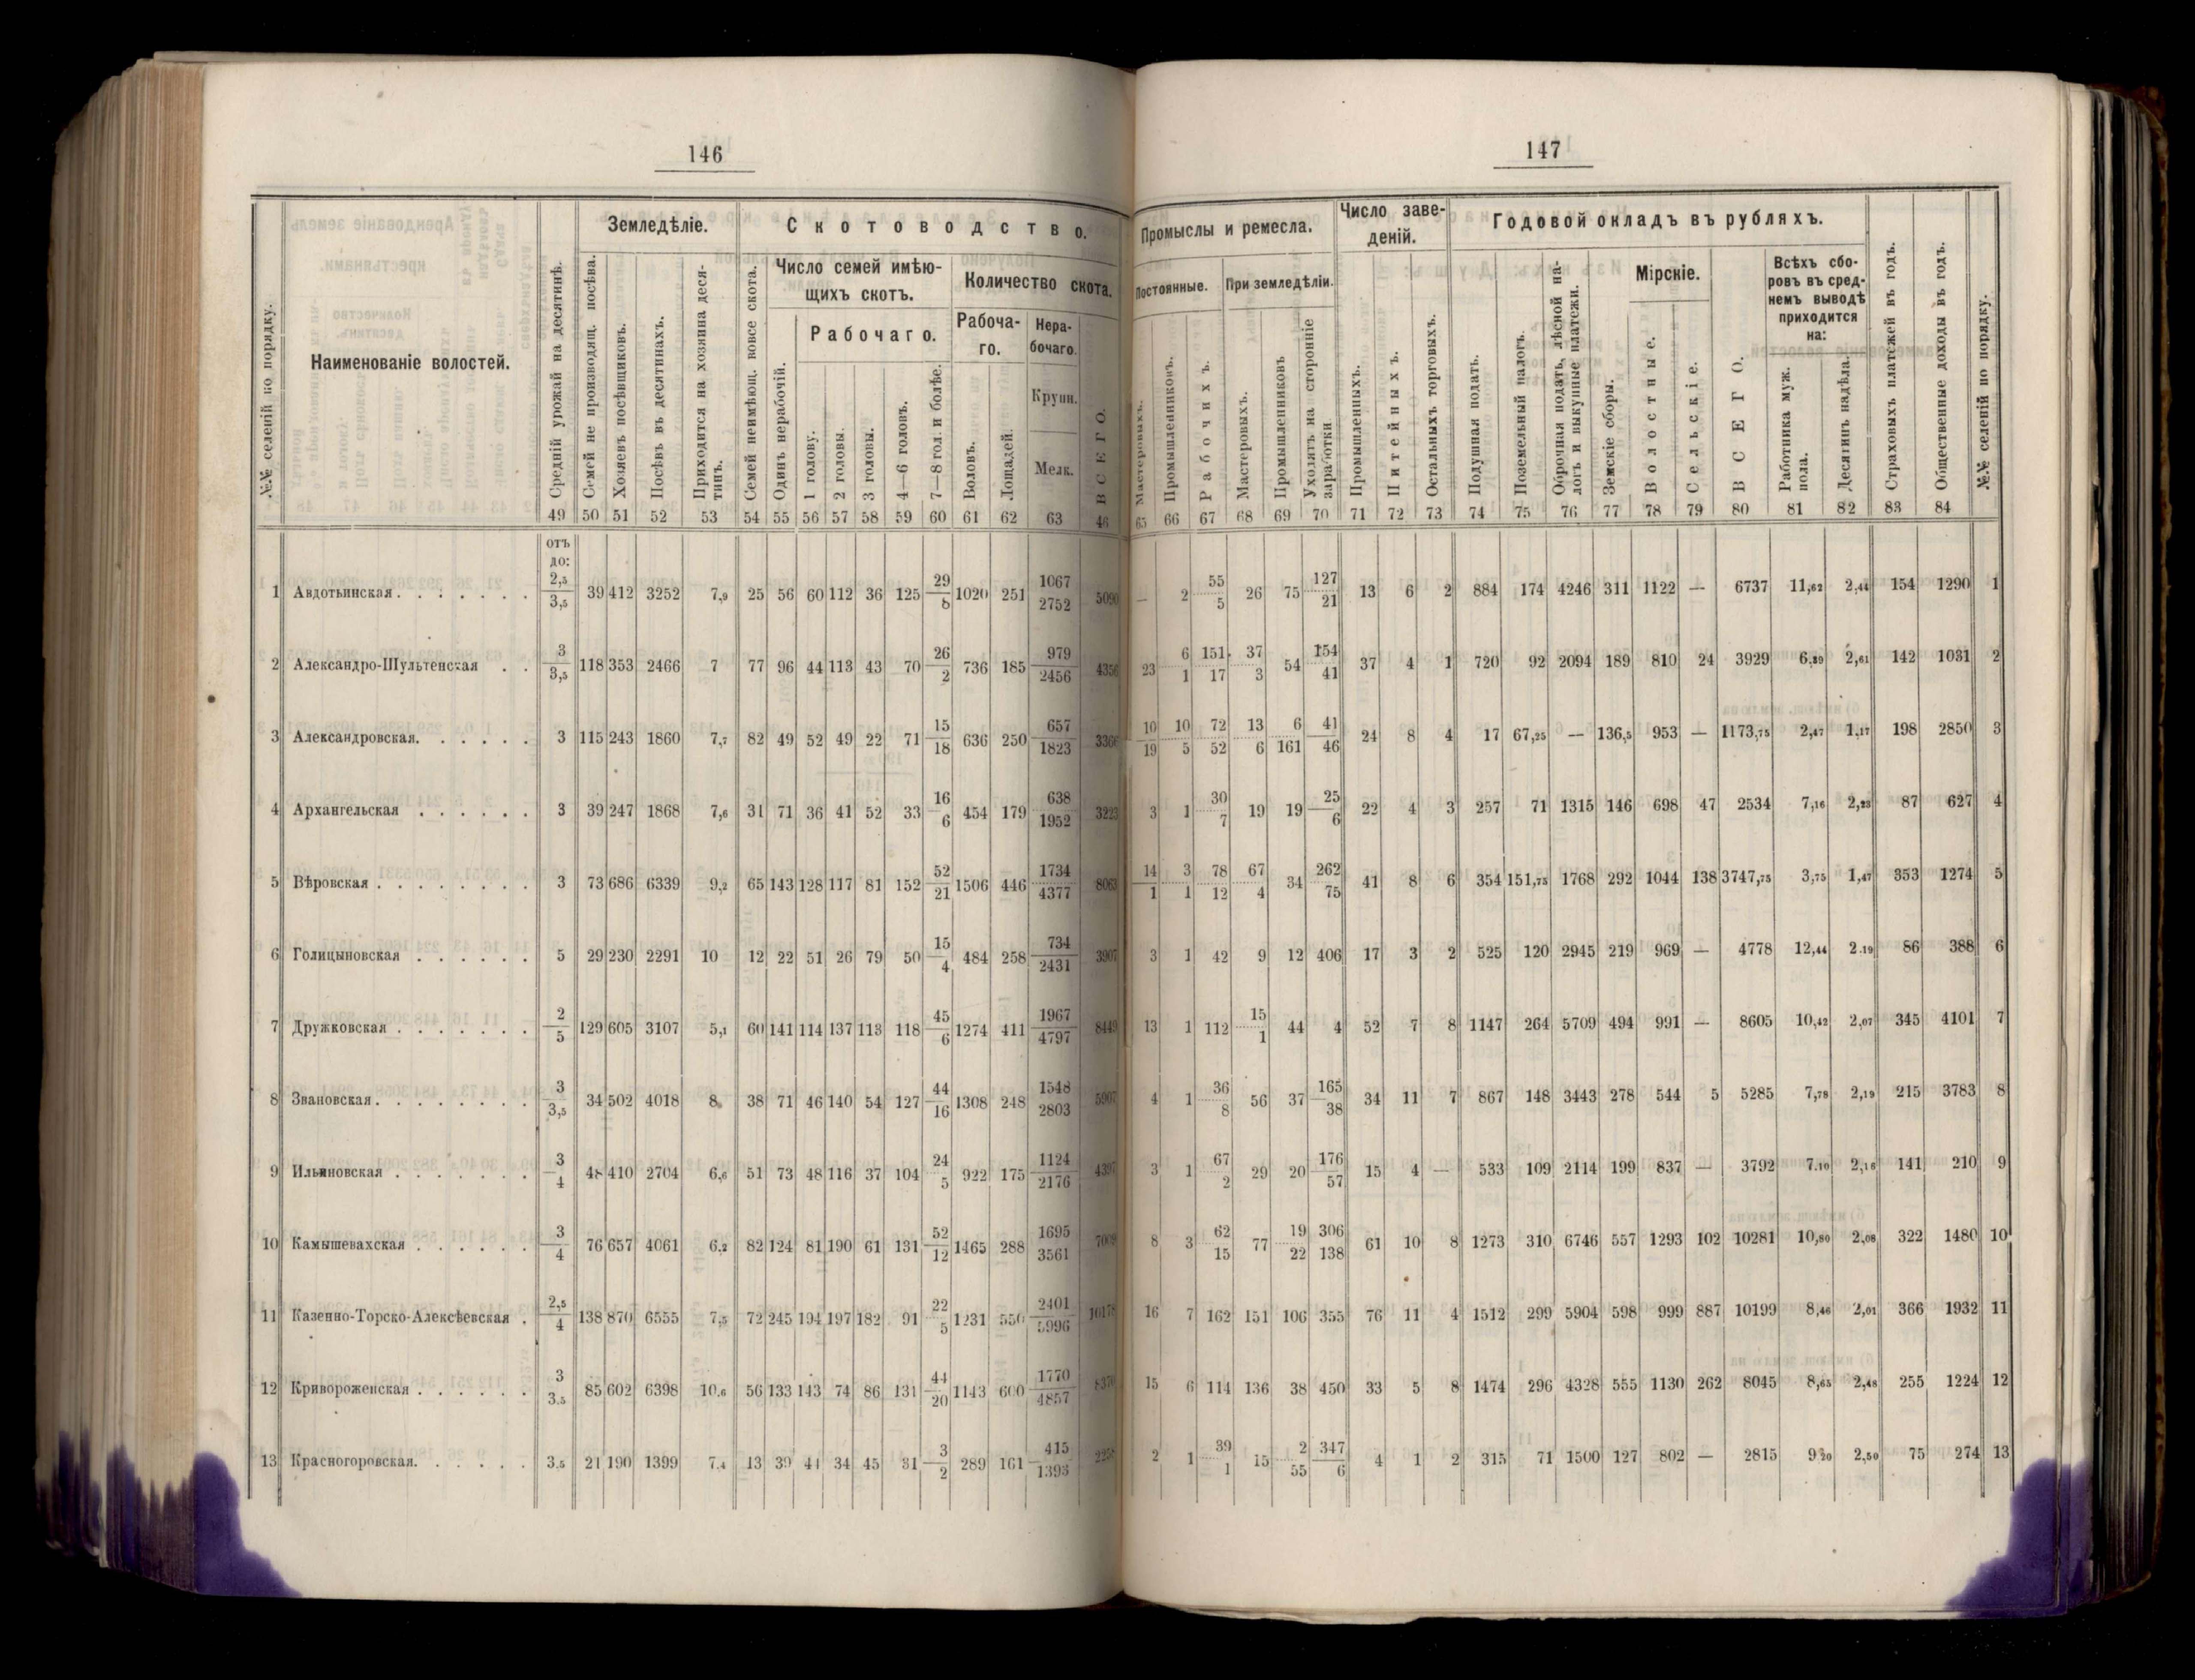 146
Земледѣліе.
Скотоводство.
№№ селеній по порядку.
Наименованіе волостей.
Средній урожай на десятинѣ.
Семей не производящ. посѣва.
Хозяевъ посѣвщиковъ.
Посѣвъ въ десятинахъ.
Приходится на хозяина деся-
тинъ.
Семей неимѣющ. вовсе скота.
Число семей имѣю-
щихъ скотъ.
Одинъ нерабочій.
Рабочаго.
1 голову.
2 головы.
3 головы.
4—6 головъ.
7—8 гол. и болѣе.
Количество скота.
Рабоча-
го.
Воловъ.
Лошадей.
Нера-
бочаго.
Крупн.
Мелк.
ВСЕГО.
49 50 51 52 53 54 55 56 57 58 59 60 61 62 63 46
отъ
до:
1 Авдотьинская. 2,5/3,5 39 412 3252 7,9 25 56 60 112 36 125 29/8 1020 251 1067/2752 5090
2 Александро-Шультенская 3/3,5 118 353 2466 7 77 96 44 113 43 70 26/2 736 185 979/2456 4356
3 Александровская. 3 115 243 1860 7,7 82 49 52 49 22 71 15/18 636 250 657/1823 3366
4 Архангельская 3 39 247 1868 7,6 31 71 36 41 52 33 16/6 454 179 638/1952 3223
5 Вѣровская 3 73 686 6339 9,2 65 143 128 117 81 152 52/21 1506 446 1734/4377 8063
6 Голицыновская 5 29 230 2291 10 12 22 51 26 79 50 15/4 484 258 734/2431 3907
7 Дружковская 2/5 129 605 3107 5,1 60 141 114 137 113 118 45/6 1274 411 1967/4797 8449
8 Звановская. 3/3,5 34 502 4018 8 38 71 46 140 54 127 44/16 1308 248 1548/2803 5907
9 Ильиновская 3/4 48 410 2704 6,6 51 73 48 116 37 104 24/5 922 175 1124/2176 4397
10 Камышевахская 3/4 76 657 4061 6,2 82 124 81 190 61 131 52/12 1465 288 1695/3561 7009
11 Казенно-Торско-Алексѣевская 2,5/4 138 870 6555 7,5 72 245 194 197 182 91 22/5 1231 550 2401/5996 10178
12 Кривороженская 3/3,5 85 602 6398 10,6 56 133 143 74 86 131 44/20 1143 600 1770/4857 8370
13 Красногоровская. 3,5 21 190 1399 7,4 13 39 41 34 45 31 3/2 289 161 415/1393 2258
147
Промыслы и ремесла.
Число заве-
деній.
Годовой окладъ въ рубляхъ.
Постоянные.
Мастеровыхъ.
Промышленниковъ.
Рабочихъ.
При земледѣліи.
Мастеровыхъ.
Промышленниковъ
Уходятъ на сторонніе
заработки
Промышленныхъ.
Питейныхъ.
Остальныхъ торговыхъ.
Подушная подать.
Поземельный налогъ.
Оброчная подать, лѣсной на-
логъ и выкупные платежи.
Земскіе сборы.
Мірскіе.
Волостные.
Сельскіе.
ВСЕГО.
Всѣхъ сбо-
ровъ въ сред-
немъ выводѣ
приходится
на:
Работника муж.
пола.
Десятинъ надѣла.
Страховыхъ платежей въ годъ.
Общественные доходы въ годъ.
№№ селеній по порядку.
65 66 67 68 69 70 71 72 73 74 75 76 77 78 79 80 81 82 83 84
— 2 55/5 26 75 127/21 13 6 2 884 174 4246 311 1122 — 6737 11,62 2,44 154 1290 1
23 6/1 151/17 37/3 54 154/41 37 4 1 720 92 2094 189 810 24 3929 6,29 2,61 142 1031 2
10/19 10/5 72/52 13/6 6/161 41/46 24 8 4 17 67,25 — 136,5 953 — 1173,75 2,47 1,17 198 2850 3
3 1 30/7 19 19 25/6 22 4 3 257 71 1315 146 698 47 2534 7,16 2,23 87 627 4
14/1 3/1 78/12 67/4 34 262/75 41 8 6 354 151,75 1768 292 1044 138 3747,75 3,75 1,47 353 1274 5
3 1 42 9 12 406 17 3 2 525 120 2945 219 969 — 4778 12,44 2,19 86 388 6
13 1 112 15/1 44 4 52 7 8 1147 264 5709 494 991 — 8605 10,42 2,07 345 4101 7
4 1 36/8 56 37 165/38 34 11 7 867 148 3443 278 544 5 5285 7,78 2,19 215 3783 8
3 1 67/2 29 20 176/57 15 4 — 533 109 2114 199 837 — 3792 7,10 2,16 141 210 9
8 3 62/15 77 19/22 306/138 61 10 8 1273 310 6746 557 1293 102 10281 10,80 2,08 322 1480 10
16 7 162 151 106 355 76 11 4 1512 299 5904 598 999 887 10199 8,46 2,01 366 1932 11
15 6 114 136 38 450 33 5 8 1474 296 4328 555 1130 262 8045 8,65 2,48 255 1224 12
2 1 39/1 15 2/55 347/6 4 1 2 315 71 1500 127 802 — 2815 9,20 2,50 75 274 13